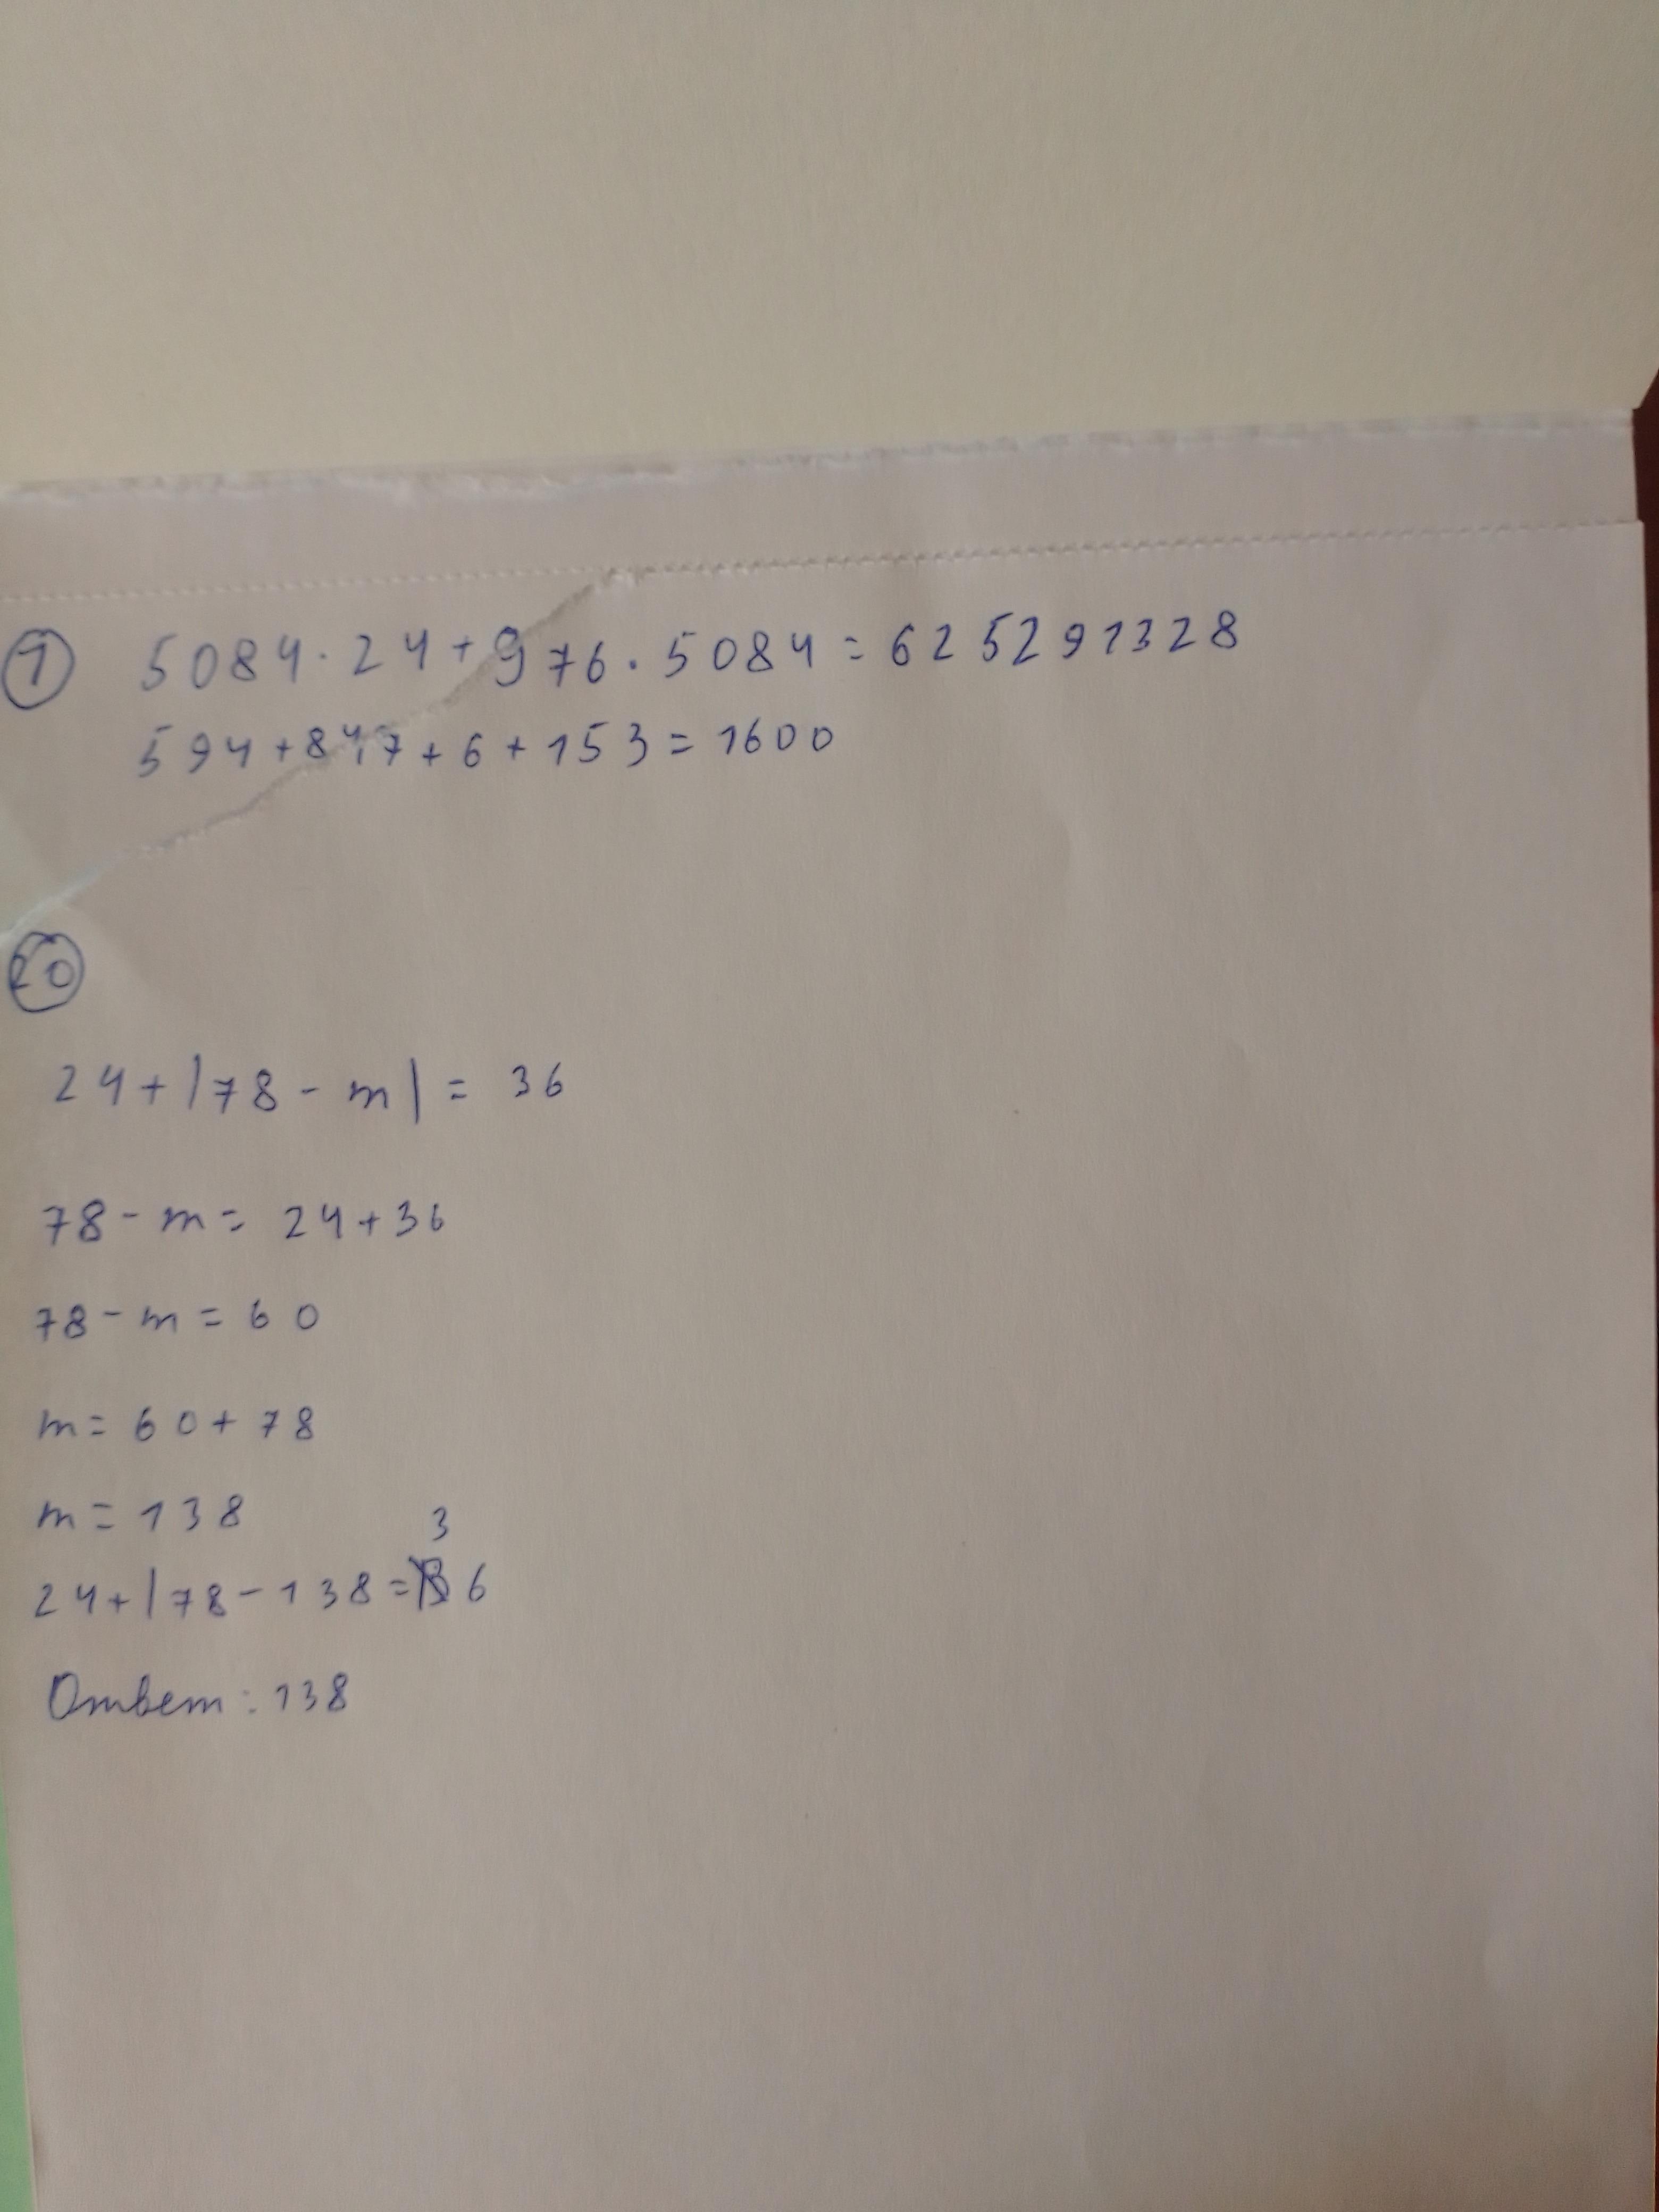 1 5084·24+976·5084=625291328
594+847+6+153=1600
20
24+|78-m|=36
78-m=24+36
78-m=60
m=60+78
m=138
3
24+|78-138=6
Ответ: 138